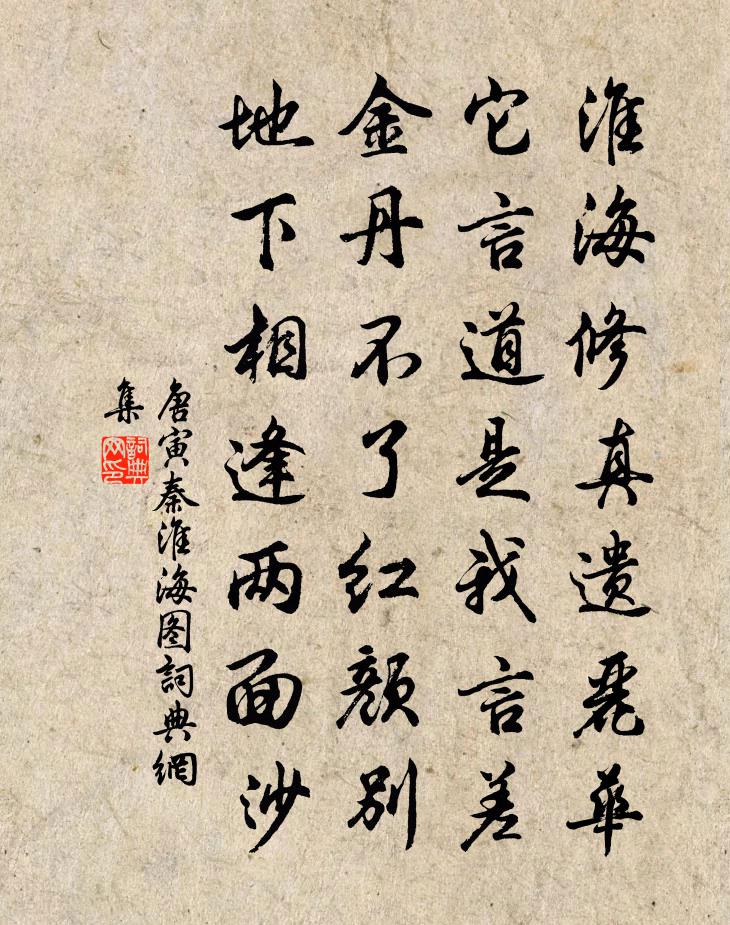 淮海修真遗麗華
它言道是我言差
金丹不了红顏別
地下相逢两面沙
唐寅秦淮海图詞典網
集
詞典网印